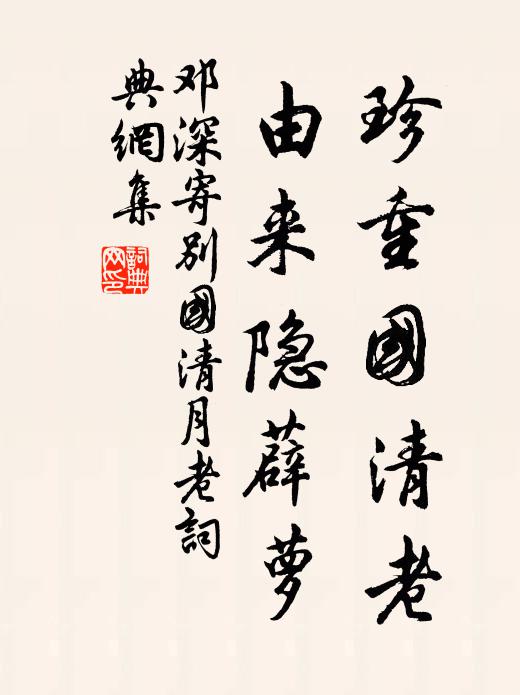 珍重國清老
由来隐薜萝
邓深寄别國清月老詞
典網集
詞典
网印